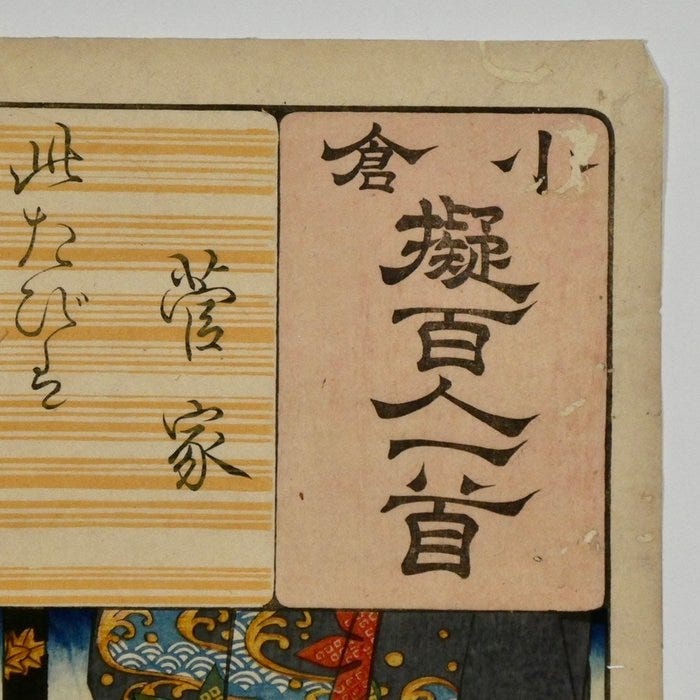 小倉
擬百人一首
菅家
此たびは